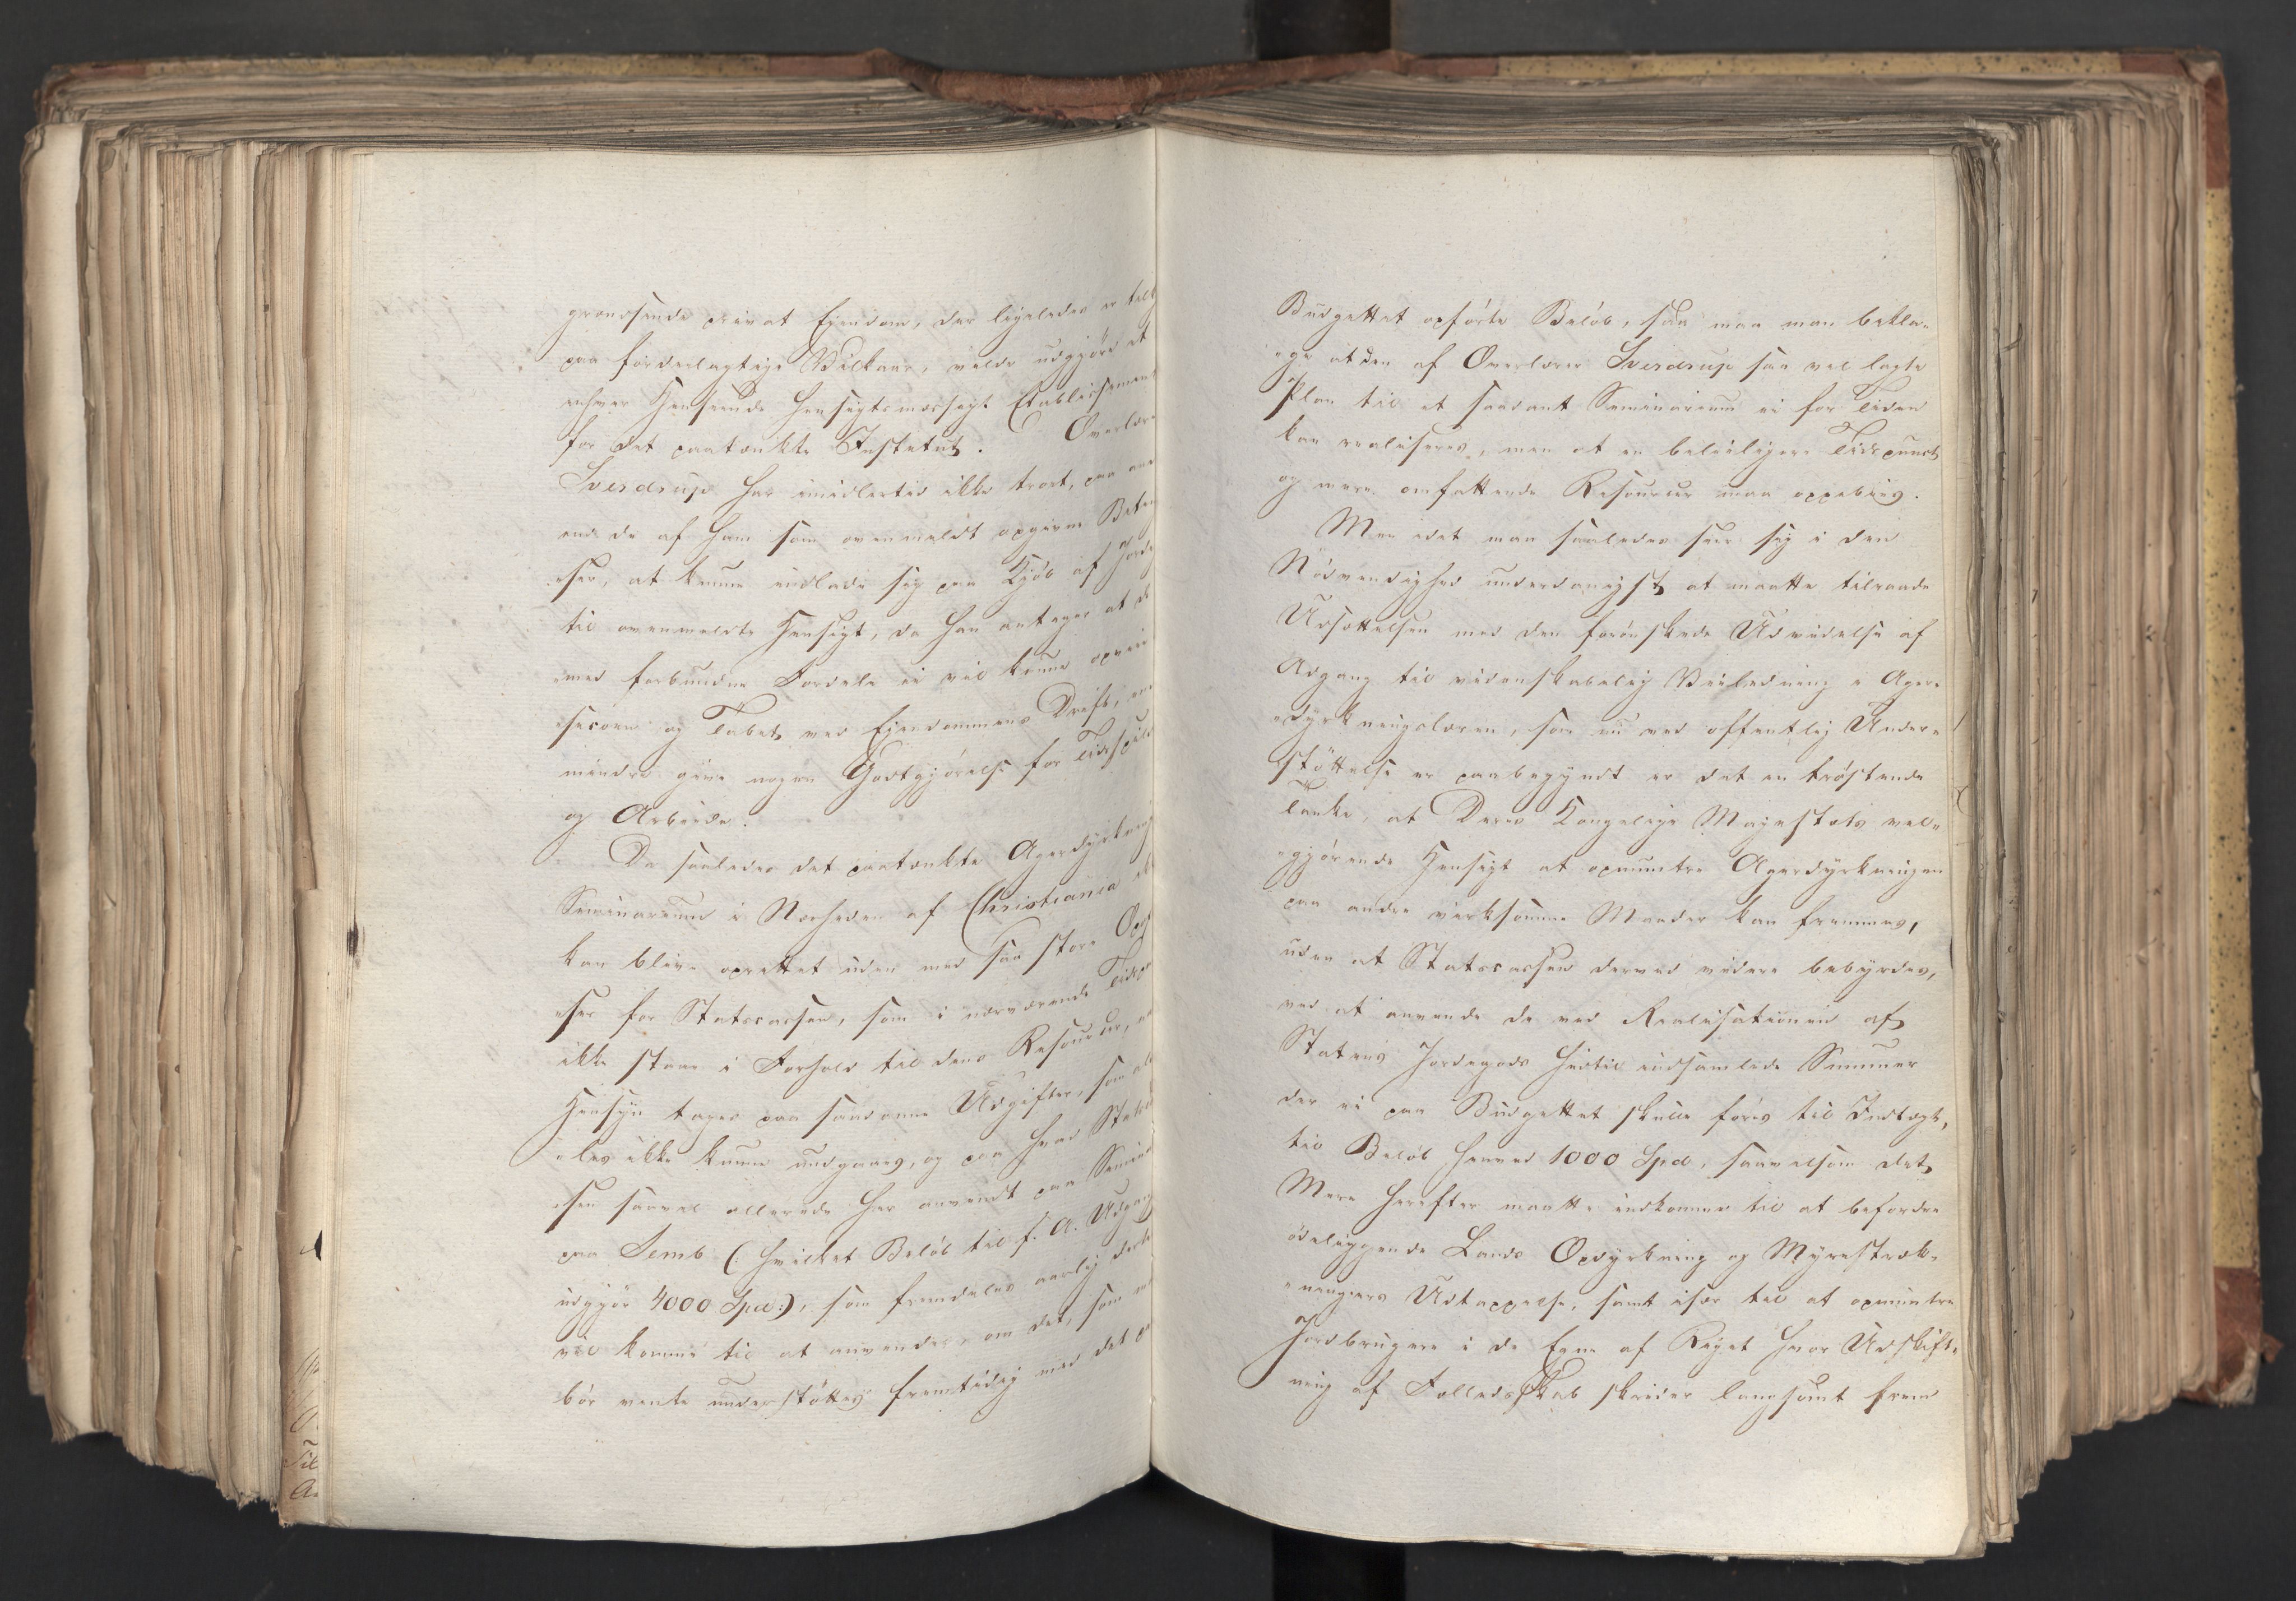 grændsende privat Eiendom, der ligeledes er tilb
paa fordeelagtige Vilkaar, vilde udgjöre et
enhver Henseende hensigtsmæssigt Etablissement
for det paatænkte Institut. Overlære
Sverdrup har imidlertid ikke troet, paa an
ende de af ham som ovenmeldt opgivne Beting
elser, at kunne indlade sig paa Kjöb af Jorde
til ovenmeldte Hensigt, da han antager at de
med forbundne Fordele ei vil kunne opveie
og Tabet ved Eiendommens Drift, en
mindre give nogen Godtgjörelse for Tidsspild
og Arbeide.
Da saaledes det paatænkte Agerdyrknings
Seminarium i Nærheden af Christiania ei
kan blive oprettet uden med saa store Opof
elser for Statscassen, som i nærværende Tidsp
ikke staae i Forhold til dens Resourcer, n
Hensyn tages paa saadanne Udgifter, som al
eles ikke kunne undgaaes, og paa hvad Stats
sen saavel allerede har anvendt paa Semin
paa Semb (: hvilket Beløb til f. A. Udgang
udgjör 4000 Spd:), som fremdeles aarlig derti
vil komme til at anvendes, om det, som m
bör vente understöttes fremtidig med det p
Budgettet opförte Belöb, saa maa man bekla„
„ge at den af Overlærer Sverdrup saa vel lagte
Plan til et saadant Seminarium ei for Tiden
kan realiseres, men at en beleiligere Tidspunct
og mere omfattende Resourcer maa oppebies.
Men idet man saaledes seer sig i den
Nödvendighed underdanigst at maatte tilraade
Udsættelsen med den forönskede Udvidelse af
Adgang til videnskabelig Veiledning i Ager„
„dyrkningslæren, som nu ved offentlig Under„
„støttelse er paabegyndt er det en tröstende
Tanke, at Deres Kongelige Majestæts vel„
„gjörende Hensigt at opmuntre Agerdyrkningen
paa andre virksomme Maader kan fremmes,
uden at Statscassen derved videre bebyrdes,
ved at anvende de ved Realisationen af
Statens Jordegods hidtil indsamlede Summer
der ei paa Budgettet skulle föres til Indtægt,
til Belöb henved 1000 Spd, saavelsom det
Mere herefter maatte indkomme til at befordre
ödeliggende Lands Opdyrkning og Myrestræk„
„ningers Udtappelse, samt især til at opmuntre
Jordbrugere i de Egne af Riget hvor Udskift„
ning af Fælledsskab skrider langsomt frem